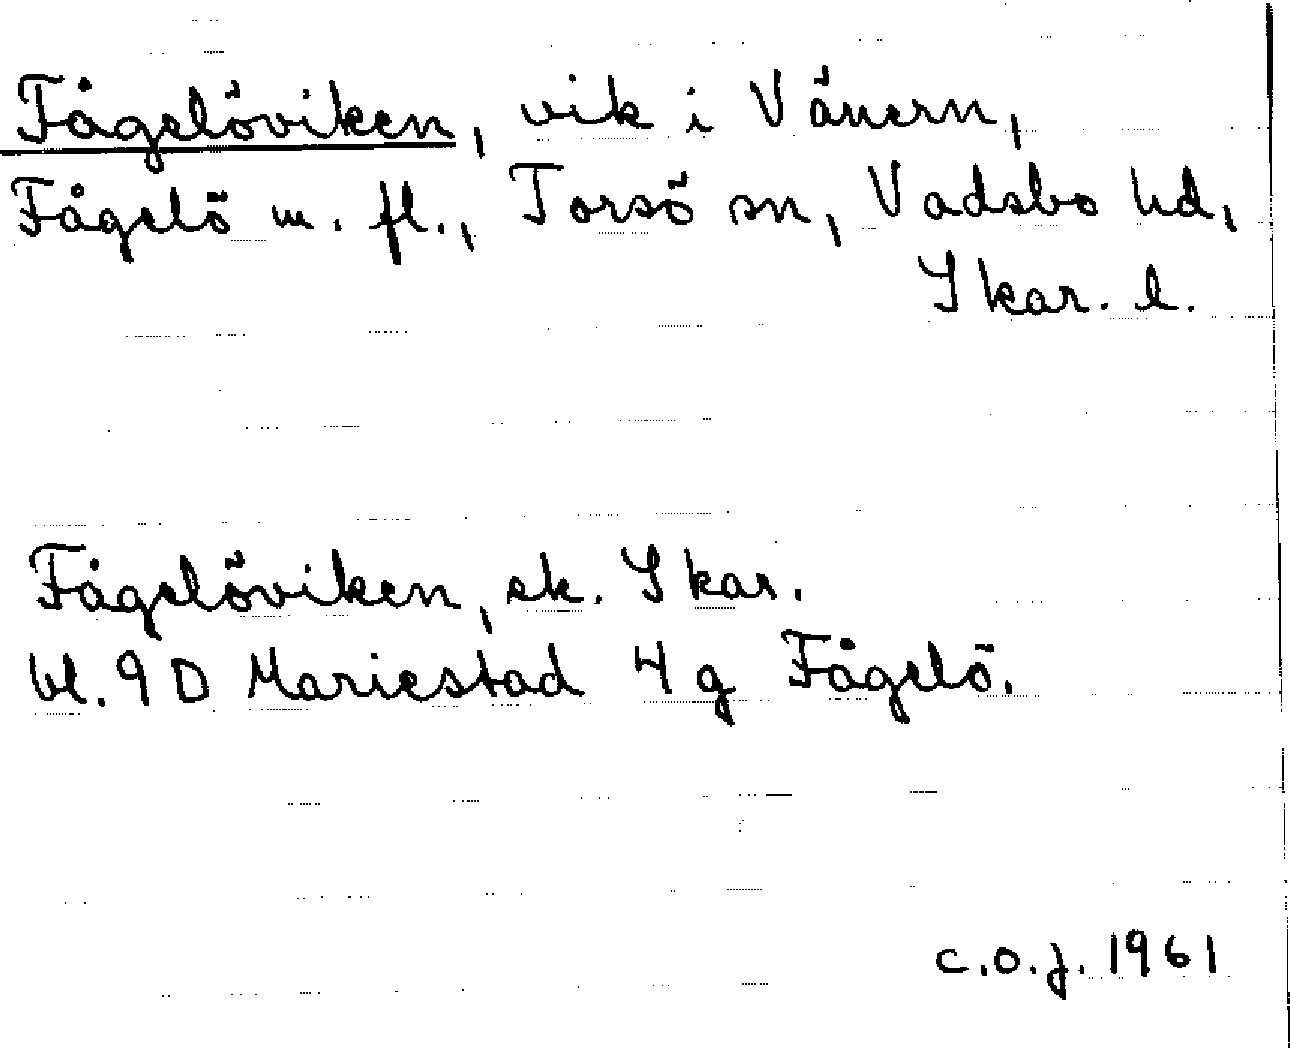 Fågelöviken, vik i Vänern,
Fågelö m. fl., Torsö sn, Vadsbo hd,
Skar. l.
Fågelöviken, ek. Skar.
bl. 9 D Mariestad 4 g Fågelö.
C.O.J. 1961